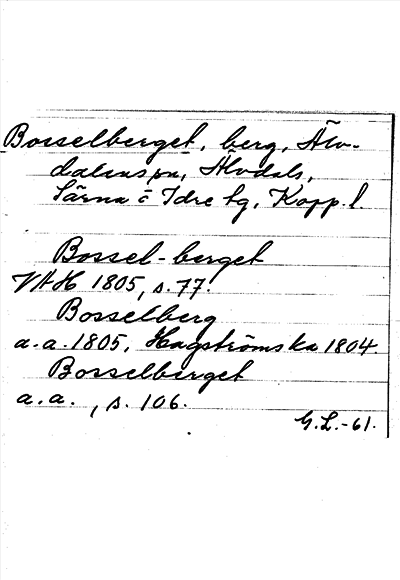 Bosselberget, berg, Älv-
dalens sn, Älvdals,
Särna o Idre tg, Kopp. l
Bossel-berget
VAH 1805, s. 77.
Bosselberg
a.a. 1805, Hagströms ka 1804.
Bosselberget
a.a., s. 106.
G.L.-61.